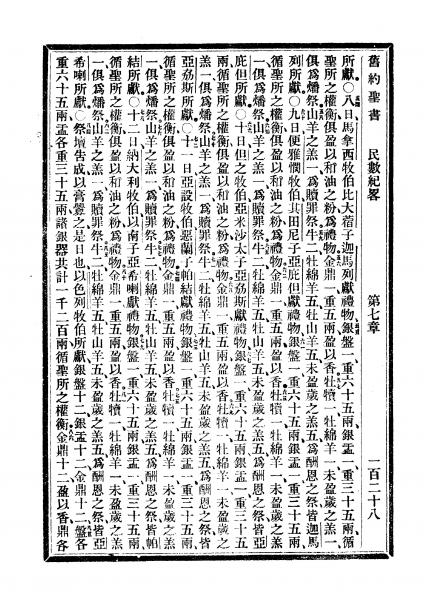 舊約聖書 民數紀畧 第七章 一百二十八
所獻○八日馬拿西牧伯比大蓿子迦馬列獻禮物銀盤一重六十五兩銀盂一重三十五兩循
聖所之權衡俱盈以和油之粉爲禮物金鼎一重五兩盈以香牡犢一牡綿羊一未盈歲之羔一
俱爲燔祭山羊之羔一爲贖罪祭牛二牡綿羊五牡山羊五未盈歲之羔五爲酬恩之祭皆迦馬
列所獻○九日便雅憫牧伯其田尼子亞庇但獻禮物銀盤一重六十五兩銀盂一重三十五兩
循聖所之權衡俱盈以和油之粉爲禮物金鼎一重五兩盈以香牡犢一牡綿羊一未盈歲之羔
一俱爲燔祭山羊之羔一爲贖罪祭牛二牡綿羊五牡山羊五未盈歲之羔五爲酬恩之祭皆亞
庇但所獻○十日但之牧伯亞米沙太子亞茘斯獻禮物銀盤一重六十五兩銀盂一重三十五
兩循聖所之權衡俱盈以和油之粉爲禮物金鼎一重五兩盈以香牡犢一牡綿羊一未盈歲之
羔一俱爲燔祭山羊之羔一爲贖罪祭牛二牡綿羊五牡山羊五未盈歲之羔五爲酬恩之祭皆
亞茘斯所獻○十一日亞設牧伯惡蘭子帕結獻禮物銀盤一重六十五兩銀盂一重三十五兩
循聖所之權衡俱盈以和油之粉爲禮物金鼎一重五兩盈以香牡犢一牡綿羊一未盈歲之羔
一俱爲燔祭山羊之羔一爲贖罪祭牛二牡綿羊五牡山羊五未盈歲之羔五爲酬恩之祭皆帕
結所獻○十二日納大利牧伯以南子亞希喇獻禮物銀盤一重六十五兩銀盂一重三十五兩
循聖所之權衡俱盈以和油之粉爲禮物金鼎一重五兩盈以香牡犢一牡綿羊一未盈歲之羔
一俱爲燔祭山羊之羔一爲贖罪祭牛二牡綿羊五牡山羊五未盈歲之羔五爲酬恩之祭皆亞
希喇所獻○祭壇告成以膏釁之是日也以色列牧伯所獻銀盤十二銀盂十二金鼎十二盤各
重六十五兩盂各重三十五兩諸銀器共計一千二百兩循聖所之權衡金鼎十二盈以香鼎各